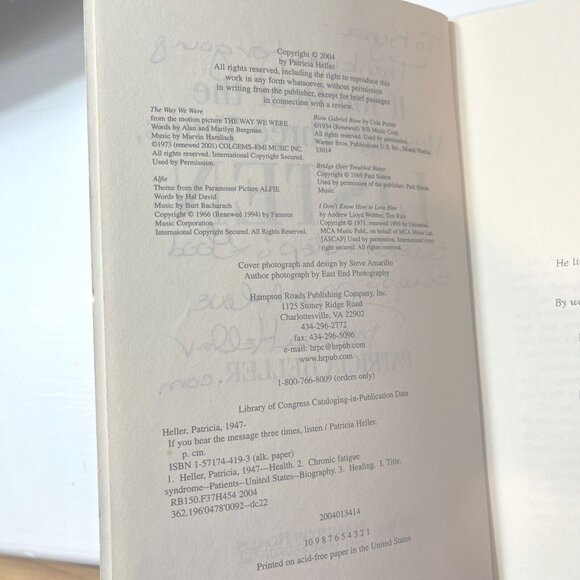 Copyright © 2004
by Patricia Heller.
All rights reserved, including the right to reproduce this
work in any form whatsoever, without permission
in writing from the publisher, except for brief passages
in connection with a review.
The Way We Were
from the motion picture THE WAY WE WERE
Words by Alan and Marilyn Bergman
Music by Marvin Hamlisch
©1973 (renewed 2001) COLGEMS-EMI MUSIC INC.
All rights reserved. International Copyright Secured.
Used by Permission.
Alfie
Theme from the Paramount Picture ALFIE
Words by Hal David
Music by Burt Bacharach
Copyright © 1966 (Renewed 1994) by Famous
Music Corporation
International Copyright Secured. All Rights Reserved.
Blow Gabriel Blow by Cole Porter
©1934 (Renewed) WB Music Corp.
All rights reserved. Used by permission.
Warner Bros. Publications U.S. Inc., Miami Florida
33014
Bridge Over Troubled Water
Copyright © 1969 Paul Simon
Used by permission of the publisher: Paul Simon
Music
I Don't Know How to Love Him
by Andrew Lloyd Webber, Tim Rice
Copyright © 1971, renewed 1999 by Universal-
MCA Music Publ., on behalf of MCA Music Ltd.
[ASCAP] Used by permission. International copy-
right secured. All rights reserved.
Cover photograph and design by Steve Amarillo
Author photograph by East End Photography
Hampton Roads Publishing Company, Inc.
1125 Stoney Ridge Road
Charlottesville, VA 22902
434-296-2772
fax: 434-296-5096
e-mail: hrpc@hrpub.com
www.hrpub.com
1-800-766-8009 (orders only)
Library of Congress Cataloging-in-Publication Data
Heller, Patricia, 1947-
If you hear the message three times, listen / Patricia Heller.
p. cm.
ISBN 1-57174-419-3 (alk. paper)
1. Heller, Patricia, 1947---Health. 2. Chronic fatigue
syndrome--Patients--United States--Biography. 3. Healing. I. Title.
RB150.F37H454 2004
362.196'0478'0092--dc22
2004013414
10 9 8 7 6 5 4 3 2 1
Printed on acid-free paper in the United States
He li
By wo